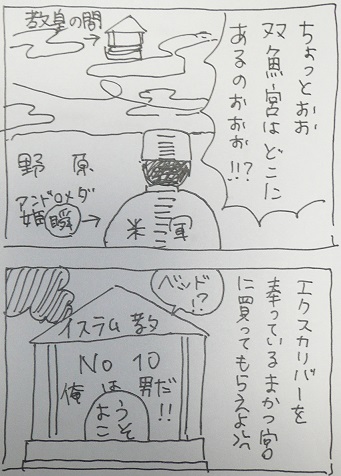 ちょっとおお
双魚宮はどこに
あるのおおお!!?
教皇の間
野原
アンドロメダ
姫瞬
米軍
エクスカリバーを
奉っているまかつ宮
に買ってもらえよ
ベッド!?
イスラム教
No 10
俺は男だ!!
ようこそ